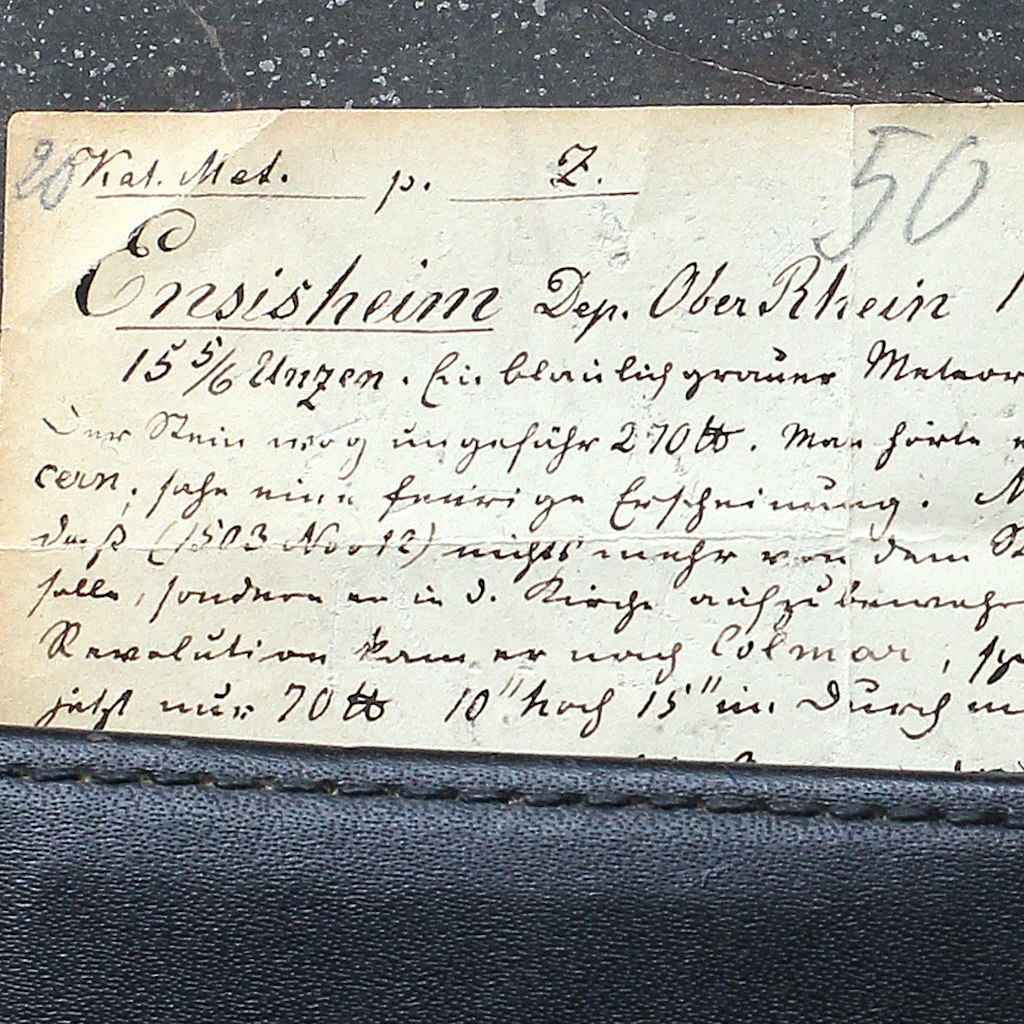 28 Kat. Met. p. Z. 50
Ensisheim Dep. Ober Rhein 1
15 5/6 Unzen. Ein blaulich grauer Meteor
Der Stein wog ungefähr 270 ℔. Man hörte
cern, sahe eine feurige Erscheinung.
daß (1503 Nov 12) nichts mehr von dem St
solle, sondern er in d. Kirche aufzubewahr
Revolution kam er nach Colmar, sp
jetzt nur 70 ℔ 10" hoch 15" im Durch m